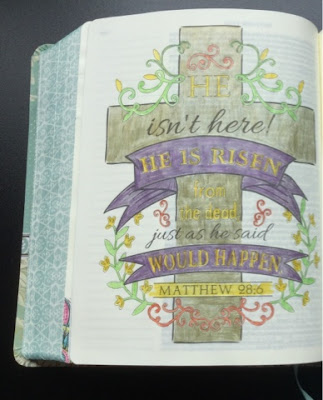 HE
isn't here!
HE IS RISEN
from
the dead
just as he said
WOULD HAPPEN
MATTHEW 28:6